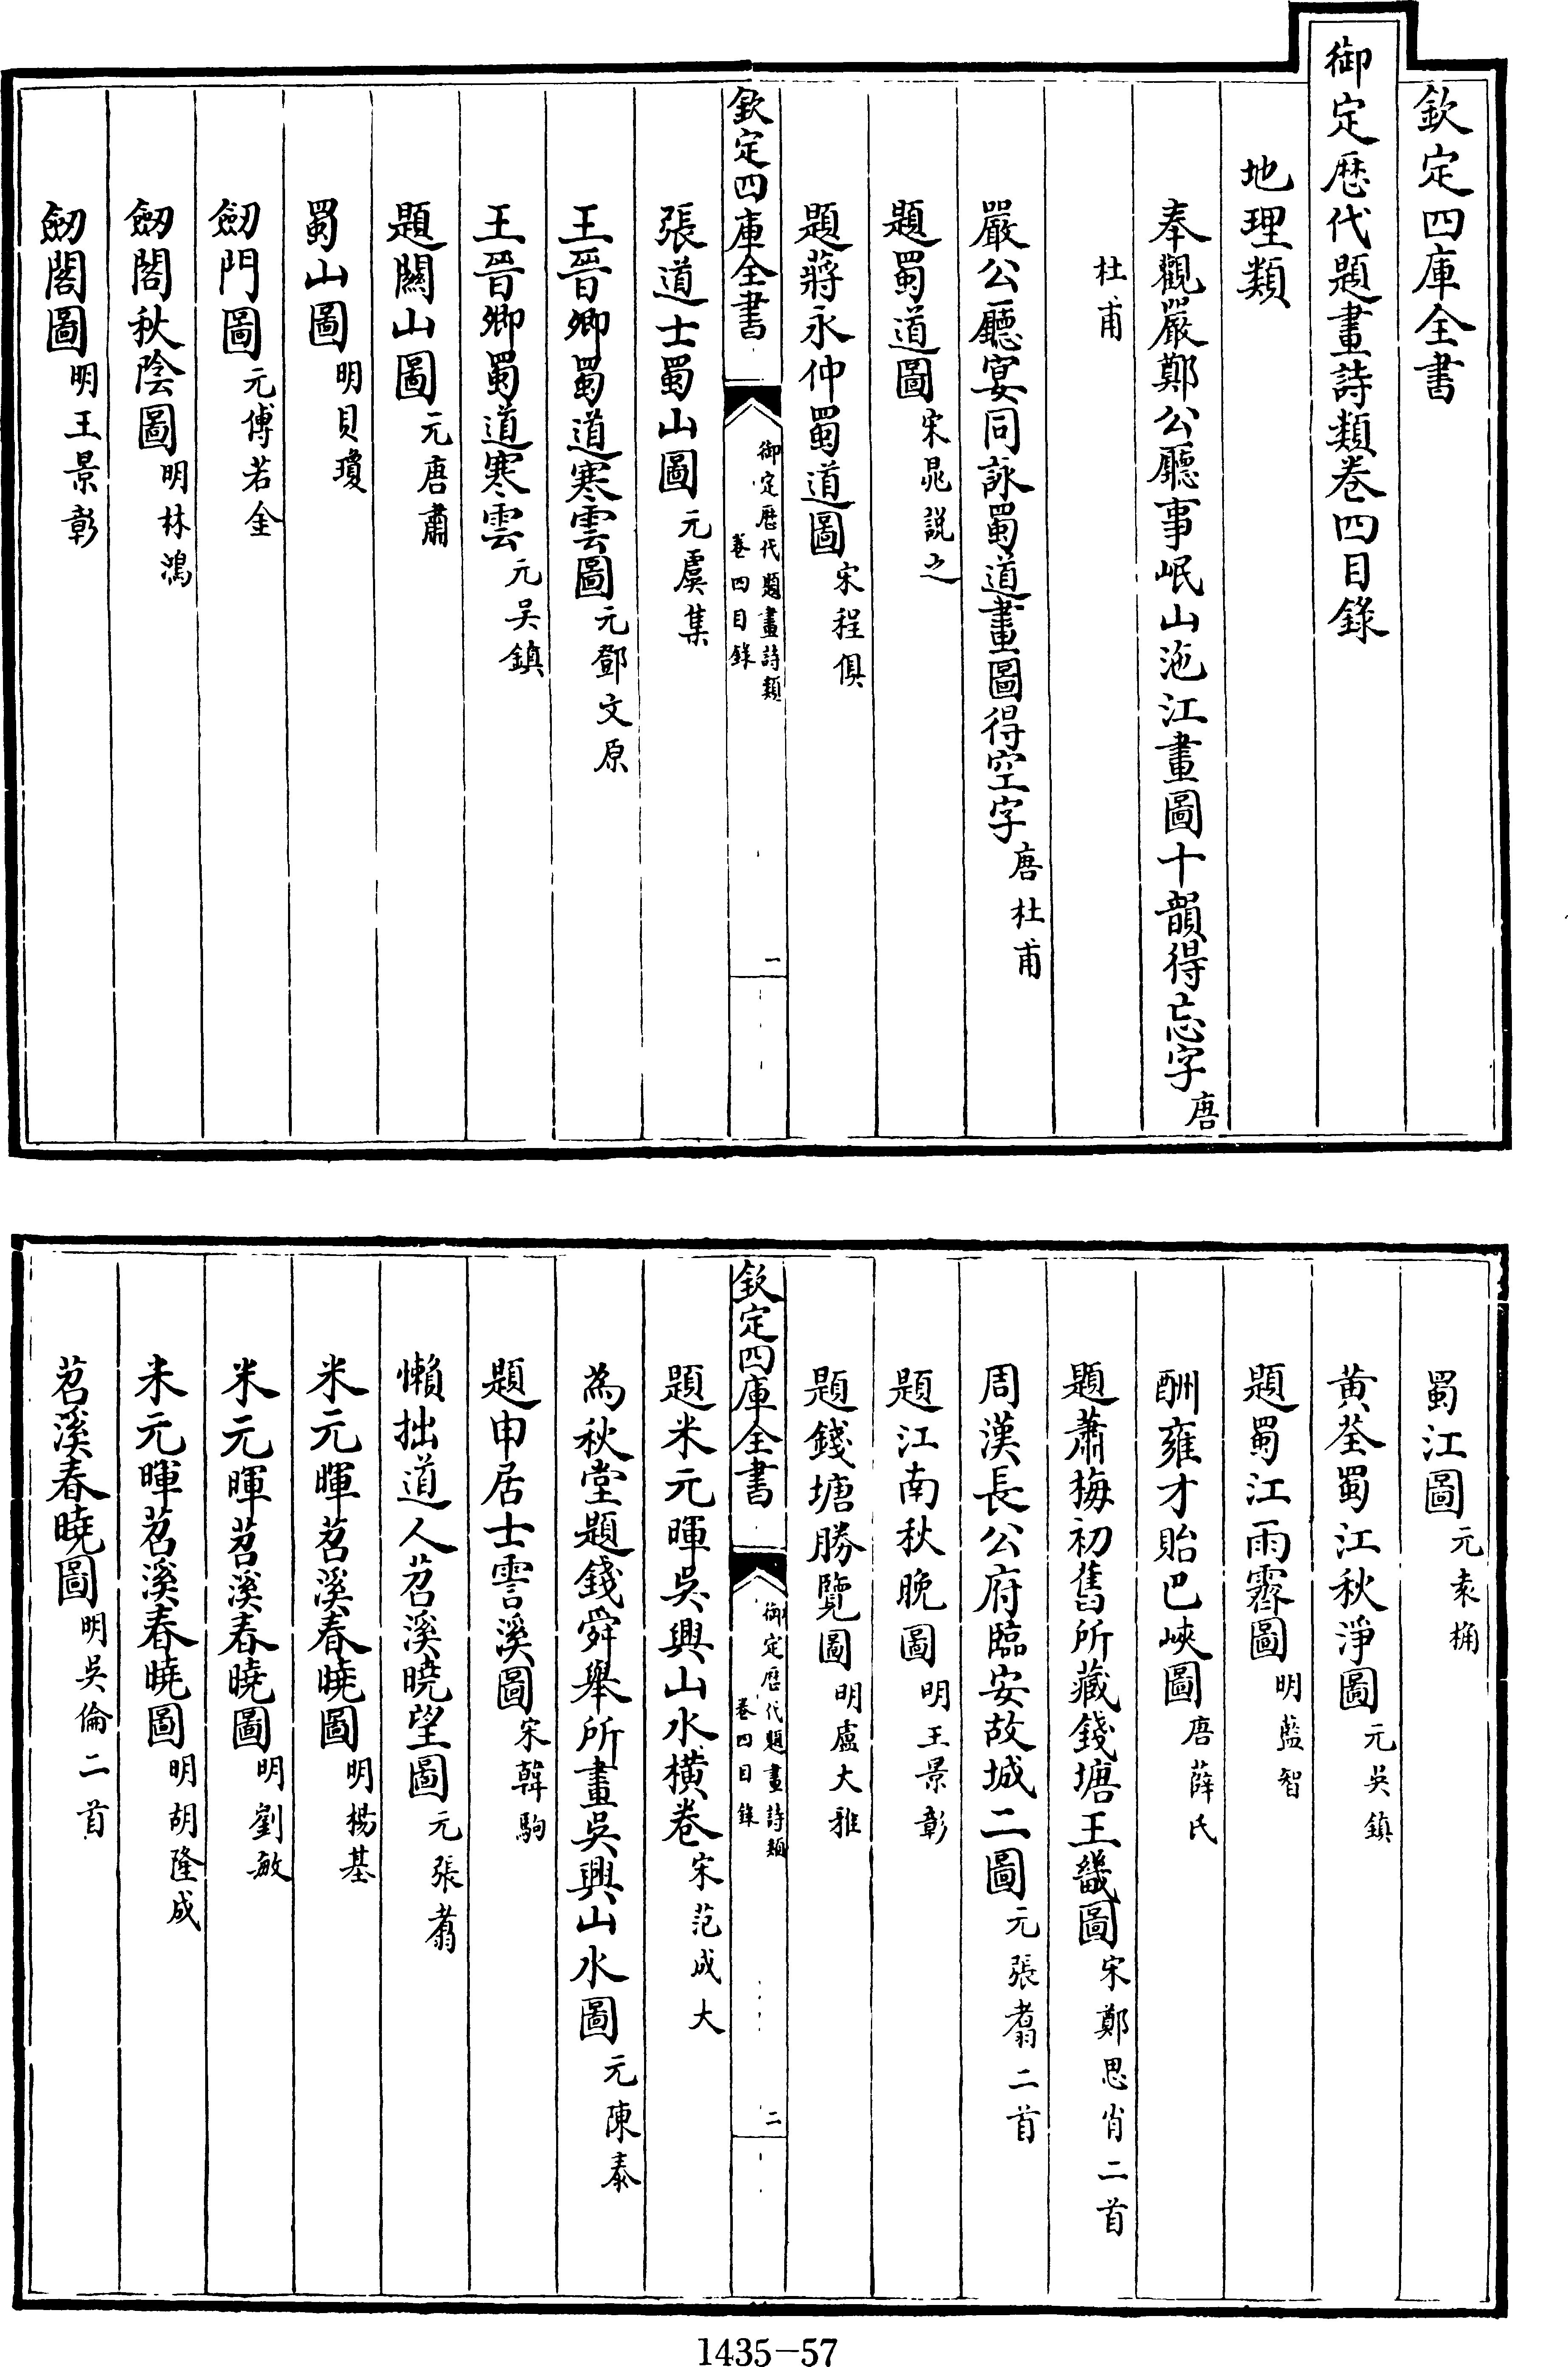 欽定四庫全書
御定歷代題畫詩類卷四目錄
地理類
奉觀嚴鄭公廳事岷山沲江畫圖十韻得忘字唐
杜甫
嚴公廳宴同詠蜀道畫圖得空字唐杜甫
題蜀道圖宋晁説之
題蔣永仲蜀道圖宋程俱
欽定四庫全書
御定歷代題畫詩類
卷四目錄
一
張道士蜀山圖元虞集
王晉卿蜀道寒雲圖元鄧文原
王晉卿蜀道寒雲元吴鎮
題關山圖元唐肅
蜀山圖明貝瓊
劒門圖元傅若金
劒閣秋陰圖明林鴻
劒閣圖明王景彰
蜀江圖元袁桷
黄荃蜀江秋淨圖元吴鎮
題蜀江雨霽圖明藍智
酬雍才貽巴峽圖唐薛氏
題蕭梅初舊所藏錢塘王畿圖宋鄭思肖二首
周漢長公府臨安故城二圖元張翥二首
題江南秋晚圖明王景彰
題錢塘勝覽圖明盧大雅
欽定四庫全書
御定歷代題畫詩類
卷四目錄
二
題米元暉吳興山水橫卷宋范成大
為秋堂題錢舜舉所畫吳興山水圖元陳泰
題申居士霅溪圖宋韓駒
懶拙道人苕溪曉望圖元張翥
米元暉苕溪春曉圖明楊基
米元暉苕溪春曉圖明劉敏
米元暉苕溪春曉圖明胡隆成
苕溪春曉圖明吳倫二首
1435-57